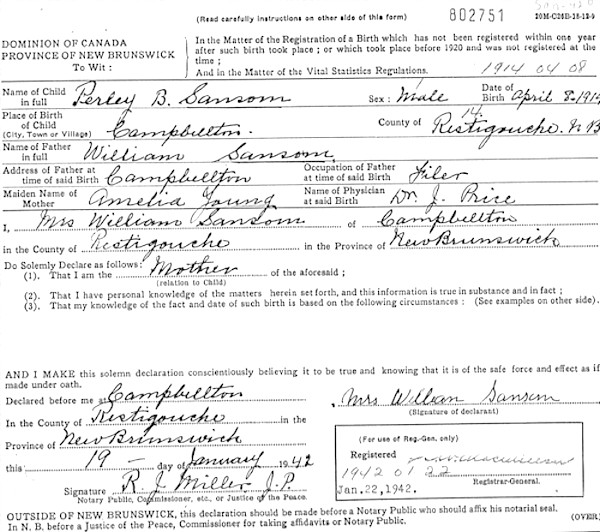 (Read carefully instructions on other side of this form)
802751
20M-C26B-15-12-9
DOMINION OF CANADA
PROVINCE OF NEW BRUNSWICK
To Wit :
In the Matter of the Registration of a Birth which has not been registered within one year
after such birth took place ; or which took place before 1920 and was not registered at the
time ;
And in the Matter of the Vital Statistics Regulations.
1914 04 08
Name of Child in full Perley B. Sansom Sex : Male Date of Birth April 8-1914
Place of Birth of Child (City, Town or Village) Campbellton. County of Restigouche. N B
14
Name of Father in full William Sansom
Address of Father at time of said Birth Campbellton Occupation of Father at time of said Birth Filer
Maiden Name of Mother Amelia Young Name of Physician at said Birth Dr. J. Price
I, Mrs William Sansom of Campbellton
in the County of Restigouche in the Province of New Brunswick
Do Solemnly Declare as follows:
(1). That I am the Mother of the aforesaid ;
(relation to Child)
(2). That I have personal knowledge of the matters herein set forth, and this information is true in substance and in fact ;
(3). That my knowledge of the fact and date of such birth is based on the following circumstances : (See examples on other side).
AND I MAKE this solemn declaration conscientiously believing it to be true and knowing that it is of the safe force and effect as if
made under oath.
Declared before me at Campbellton
In the County of Restigouche in the
Province of New Brunswick
this 19 - day of January 1942
Signature R. J. Miller. J. P.
Notary Public, Commissioner, etc., or Justice of the Peace.
Mrs William Sansom
(Signature of declarant)
(For use of Reg.-Gen. only)
Registered
1942 01 22
Registrar-General.
Jan.22,1942.
OUTSIDE OF NEW BRUNSWICK, this declaration should be made before a Notary Public who should affix his notarial seal.
In N. B. before a Justice of the Peace, Commissioner for taking affidavits or Notary Public.
(OVER)